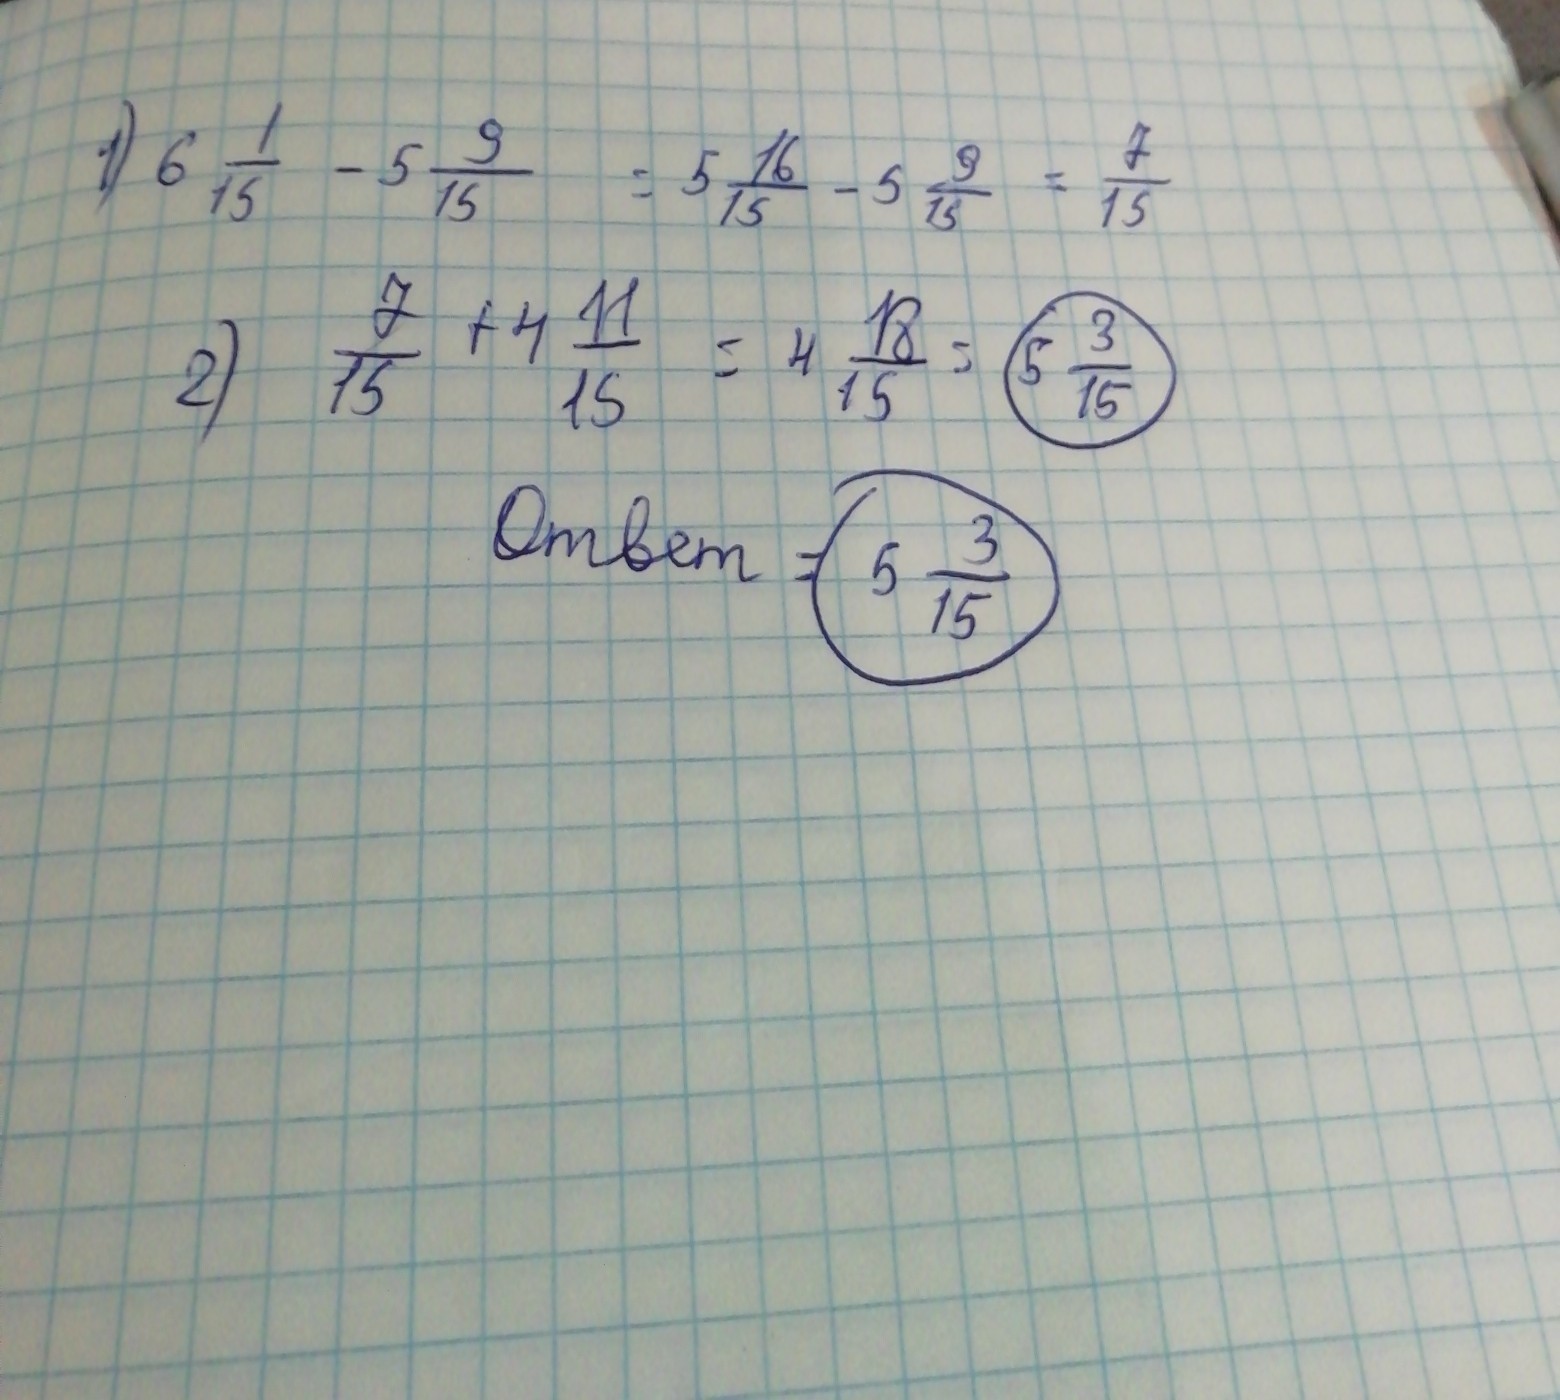 1) 6 1/15 - 5 9/15 = 5 16/15 - 5 9/15 = 7/15
2) 7/15 + 4 11/15 = 4 18/15 = 5 3/15
Ответ = 5 3/15